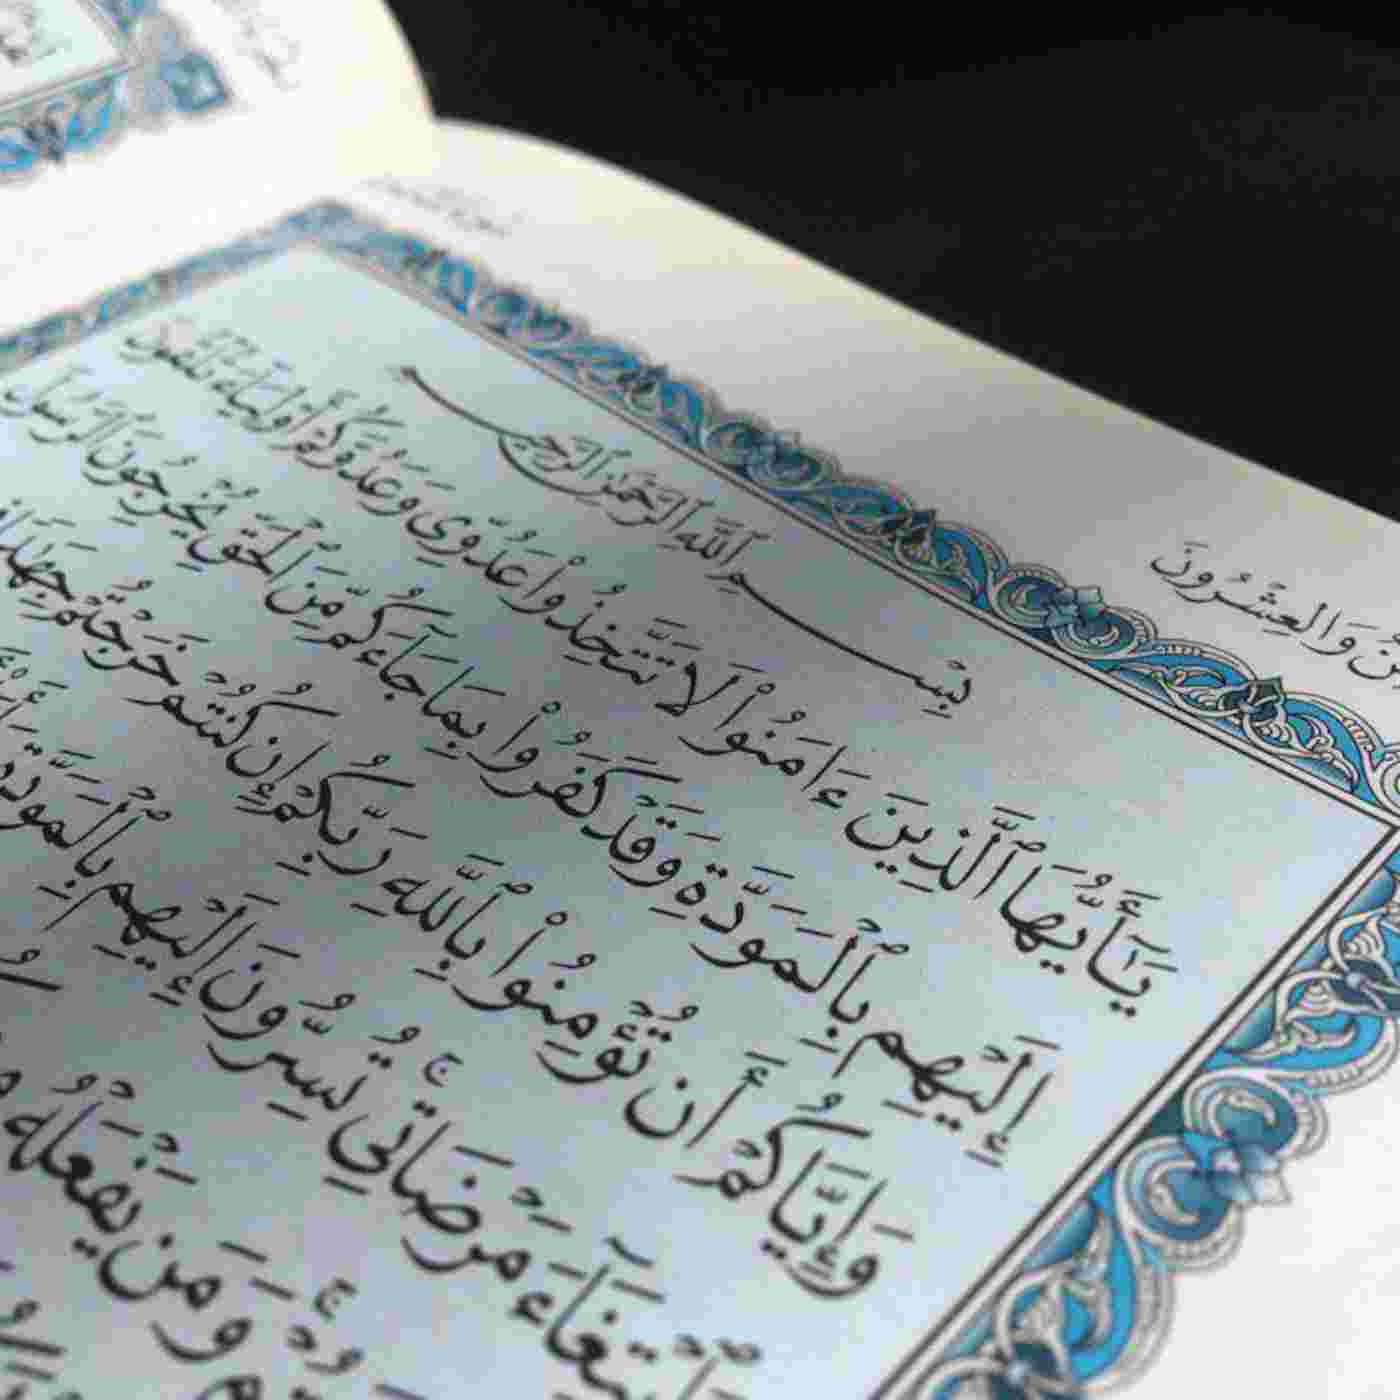 وَٱلْعِشْرُونَ
بِسْمِ ٱللَّهِ ٱلرَّحْمَٰنِ ٱلرَّحِيمِ
يَٰٓأَيُّهَا ٱلَّذِينَ ءَامَنُوا۟ لَا تَتَّخِذُوا۟ عَدُوِّى وَعَدُوَّكُمْ أَوْلِيَآءَ تُلْقُونَ
إِلَيْهِم بِٱلْمَوَدَّةِ وَقَدْ كَفَرُوا۟ بِمَا جَآءَكُم مِّنَ ٱلْحَقِّ يُخْرِجُونَ ٱلرَّسُولَ
وَإِيَّاكُمْ أَن تُؤْمِنُوا۟ بِٱللَّهِ رَبِّكُمْ إِن كُنتُمْ خَرَجْتُمْ جِهَٰدًا
ٱبْتِغَآءَ مَرْضَاتِى ۚ تُسِرُّونَ إِلَيْهِم بِٱلْمَوَدَّةِ
وَمَن يَفْعَلْهُ